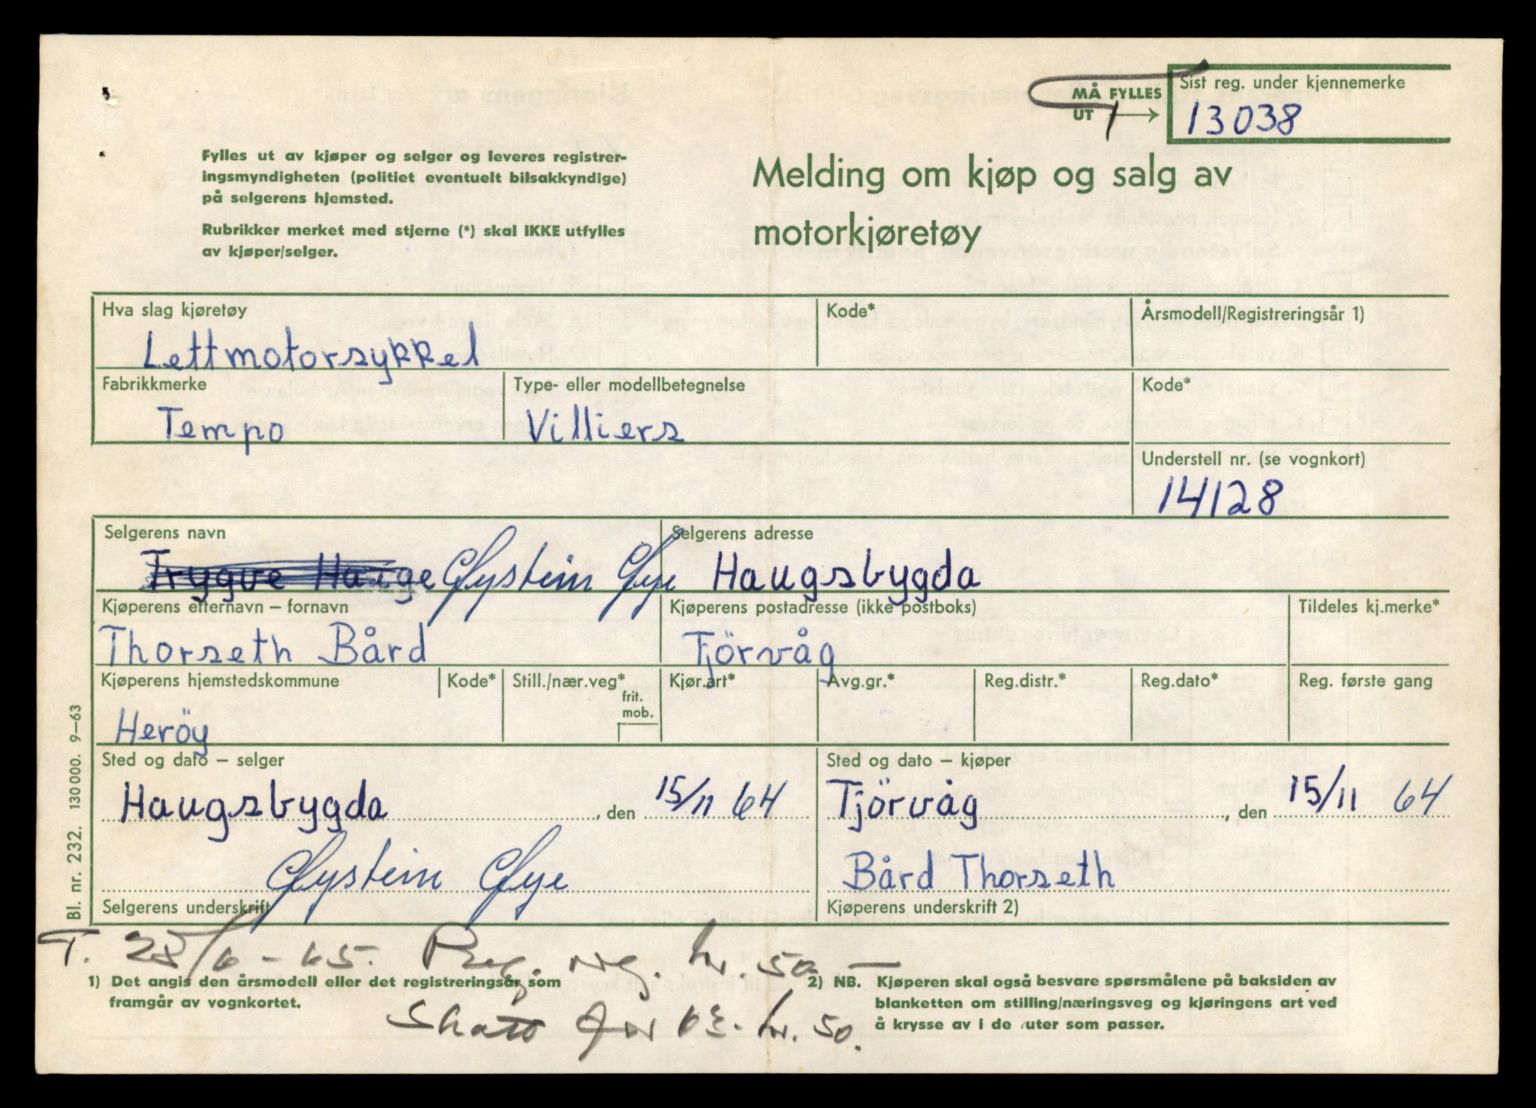 Sist reg. under kjennemerke
MÅ FYLLES
UT
13038
Fylles ut av kjøper og selger og leveres registrer-
ingsmyndigheten (politiet eventuelt bilsakkyndige)
på selgerens hjemsted.
Rubrikker merket med stjerne (*) skal IKKE utfylles
av kjøper/selger.
Melding om kjøp og salg av
motorkjøretøy
Hva slag kjøretøy Kode* Årsmodell/Registreringsår 1)
Lettmotorsykkel
Fabrikkmerke Type- eller modellbetegnelse Kode*
Tempo Villiers
Understell nr. (se vognkort)
14128
Selgerens navn Selgerens adresse
Trygve Hauge Øystein Øye Haugsbygda
Kjøperens efternavn – fornavn Kjøperens postadresse (ikke postboks) Tildeles kj.merke*
Thorseth Bård Tjörvåg
Kjøperens hjemstedskommune Kode* Still./nær.veg* Kjør.art* Avg.gr.* Reg.distr.* Reg.dato* Reg. første gang
frit.
mob.
Heröy
Sted og dato – selger Sted og dato – kjøper
Haugsbygda , den 15/11 64 Tjörvåg , den 15/11 64
Øystein Øye Bård Thorseth
Selgerens underskrift Kjøperens underskrift 2)
T. 28/6-65. Reg. kr. 50.—
1) Det angis den årsmodell eller det registreringsår som
framgår av vognkortet.
for kr. 50.
2) NB. Kjøperen skal også besvare spørsmålene på baksiden av
blanketten om stilling/næringsveg og kjøringens art ved
å krysse av i de ruter som passer.
Bl. nr. 232. 130 000. 9–63